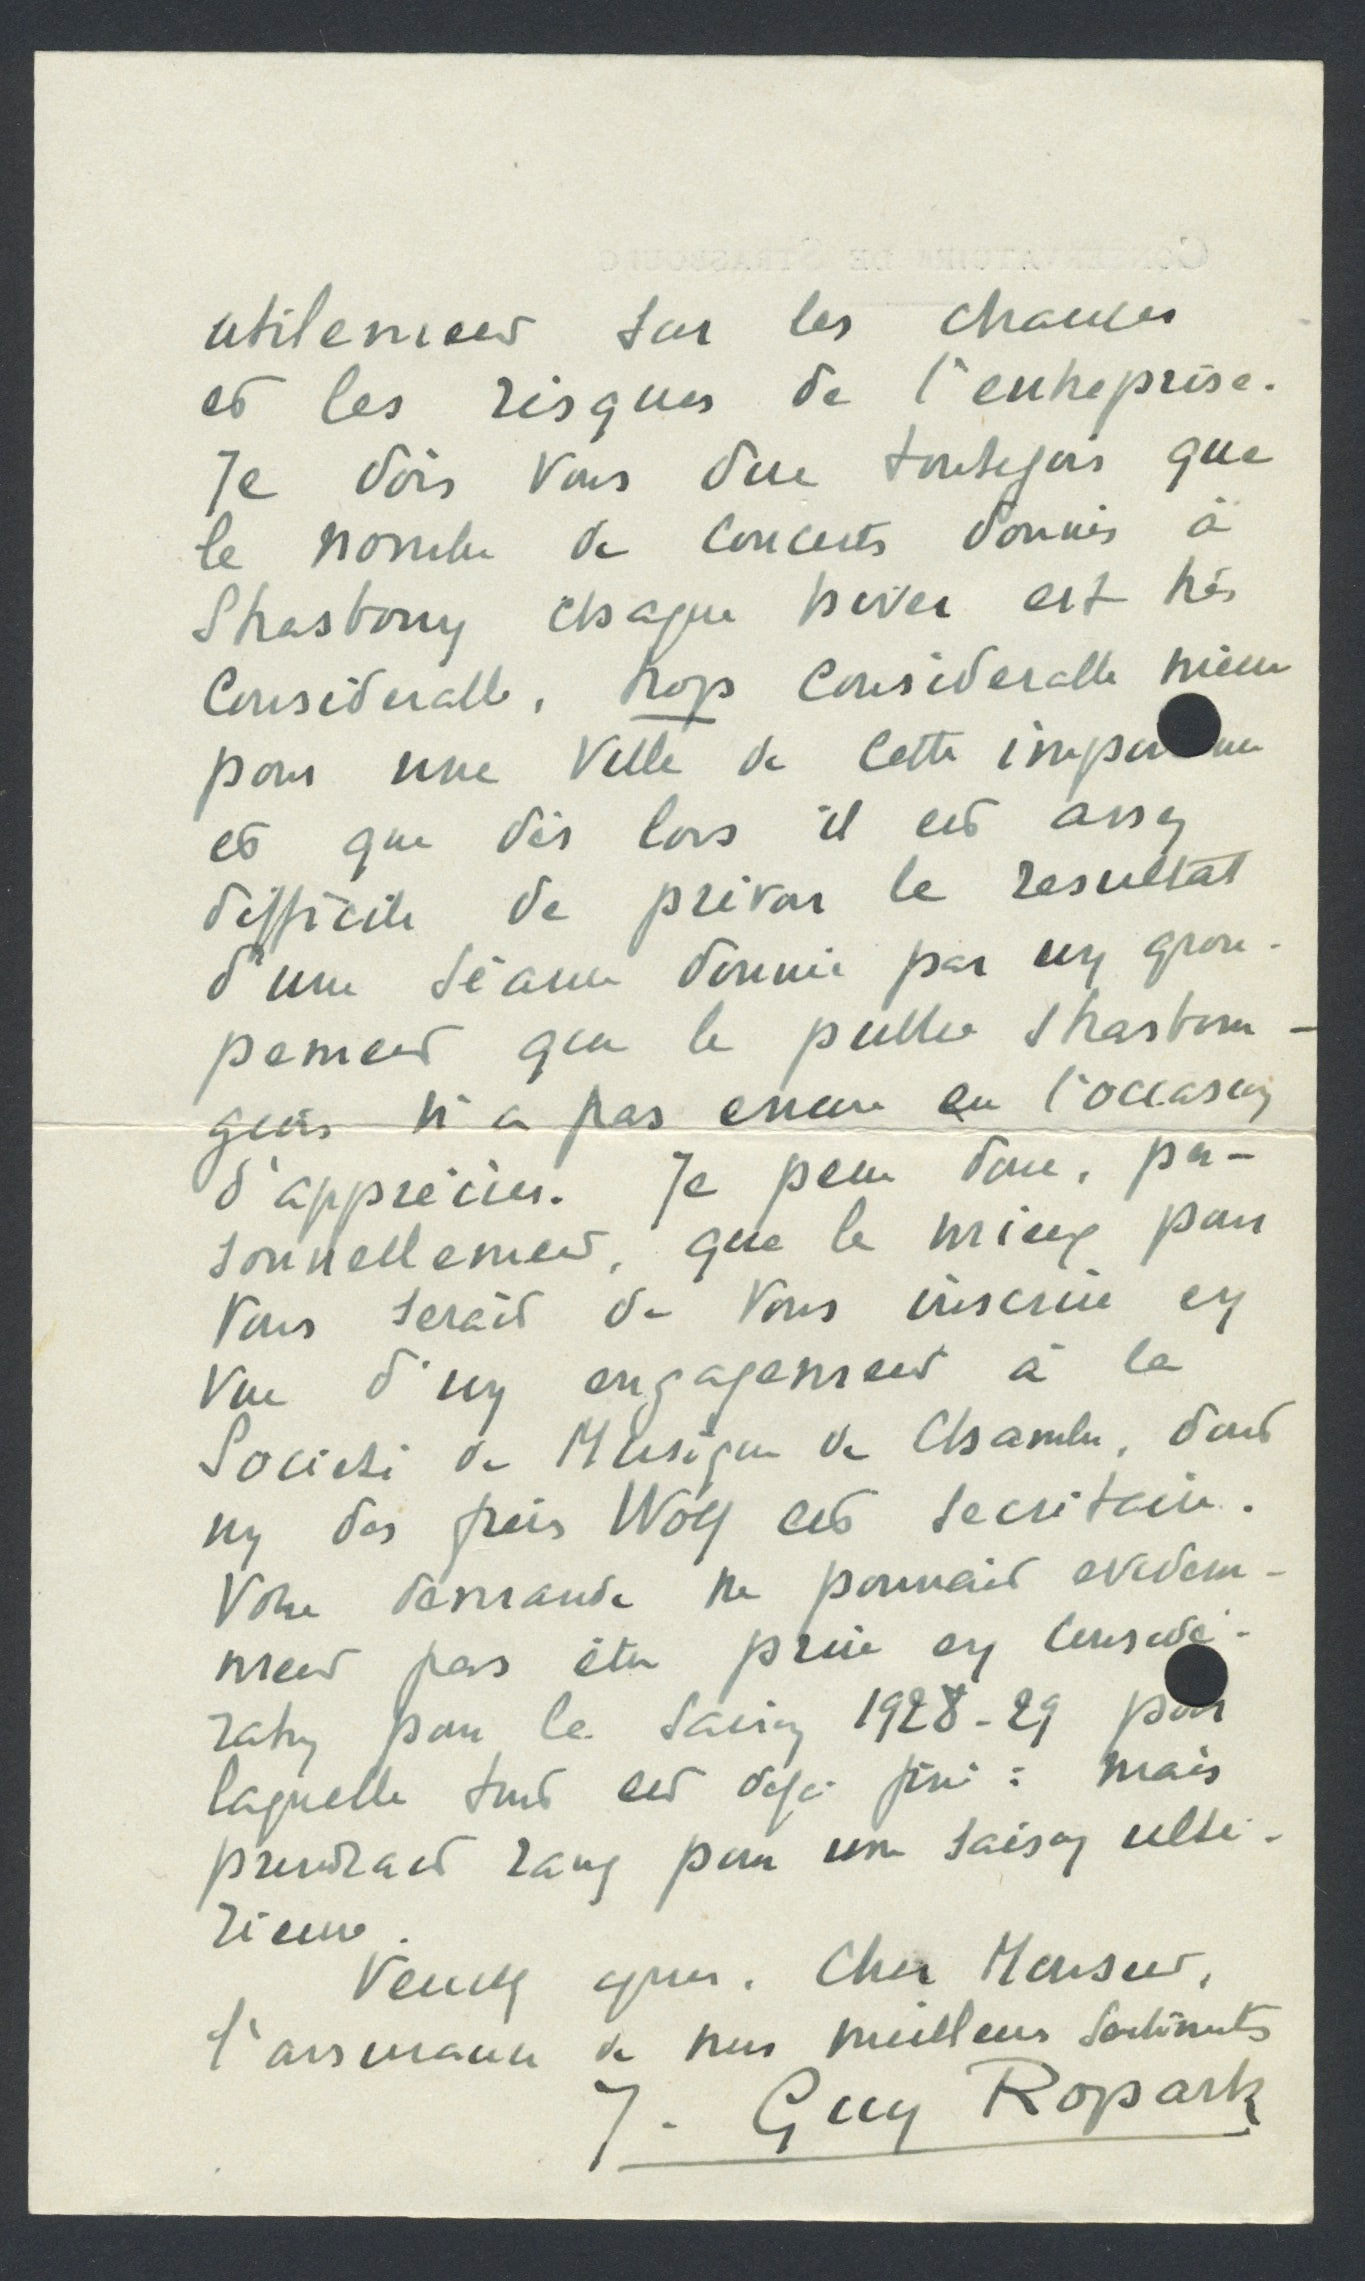 utilement sur les chances
et les risques de l'entreprise.
Je dois vous dire toutefois que
le nombre de concerts donnés à
Strasbourg chaque hiver est très
considerable, trop considerable même
pour une ville de cette importance
et que dès lors il est assez
difficile de prévoir le resultat
d'une séance donnée par un grou-
pement que le public strasbour-
geois n'a pas encore eu l'occasion
d'apprécier. Je pense donc, per-
sonnellement, que le mieux pour
vous serait de vous inscrire en
vue d'un engagement à la
Société de Musique de Chambre, dont
un des frères Wolf est secrétaire.
Votre demande ne pourrait evidem-
ment pas être prise en considé-
ration pour la saison 1928-29 pour
laquelle tout est déjà fini : mais
prendrait rang pour une saison ulté-
rieure.
Veuillez agréer, Cher Monsieur,
l'assurance de mes meilleurs sentiments
J. Guy Ropartz
CONSERVATOIRE DE STRASBOURG